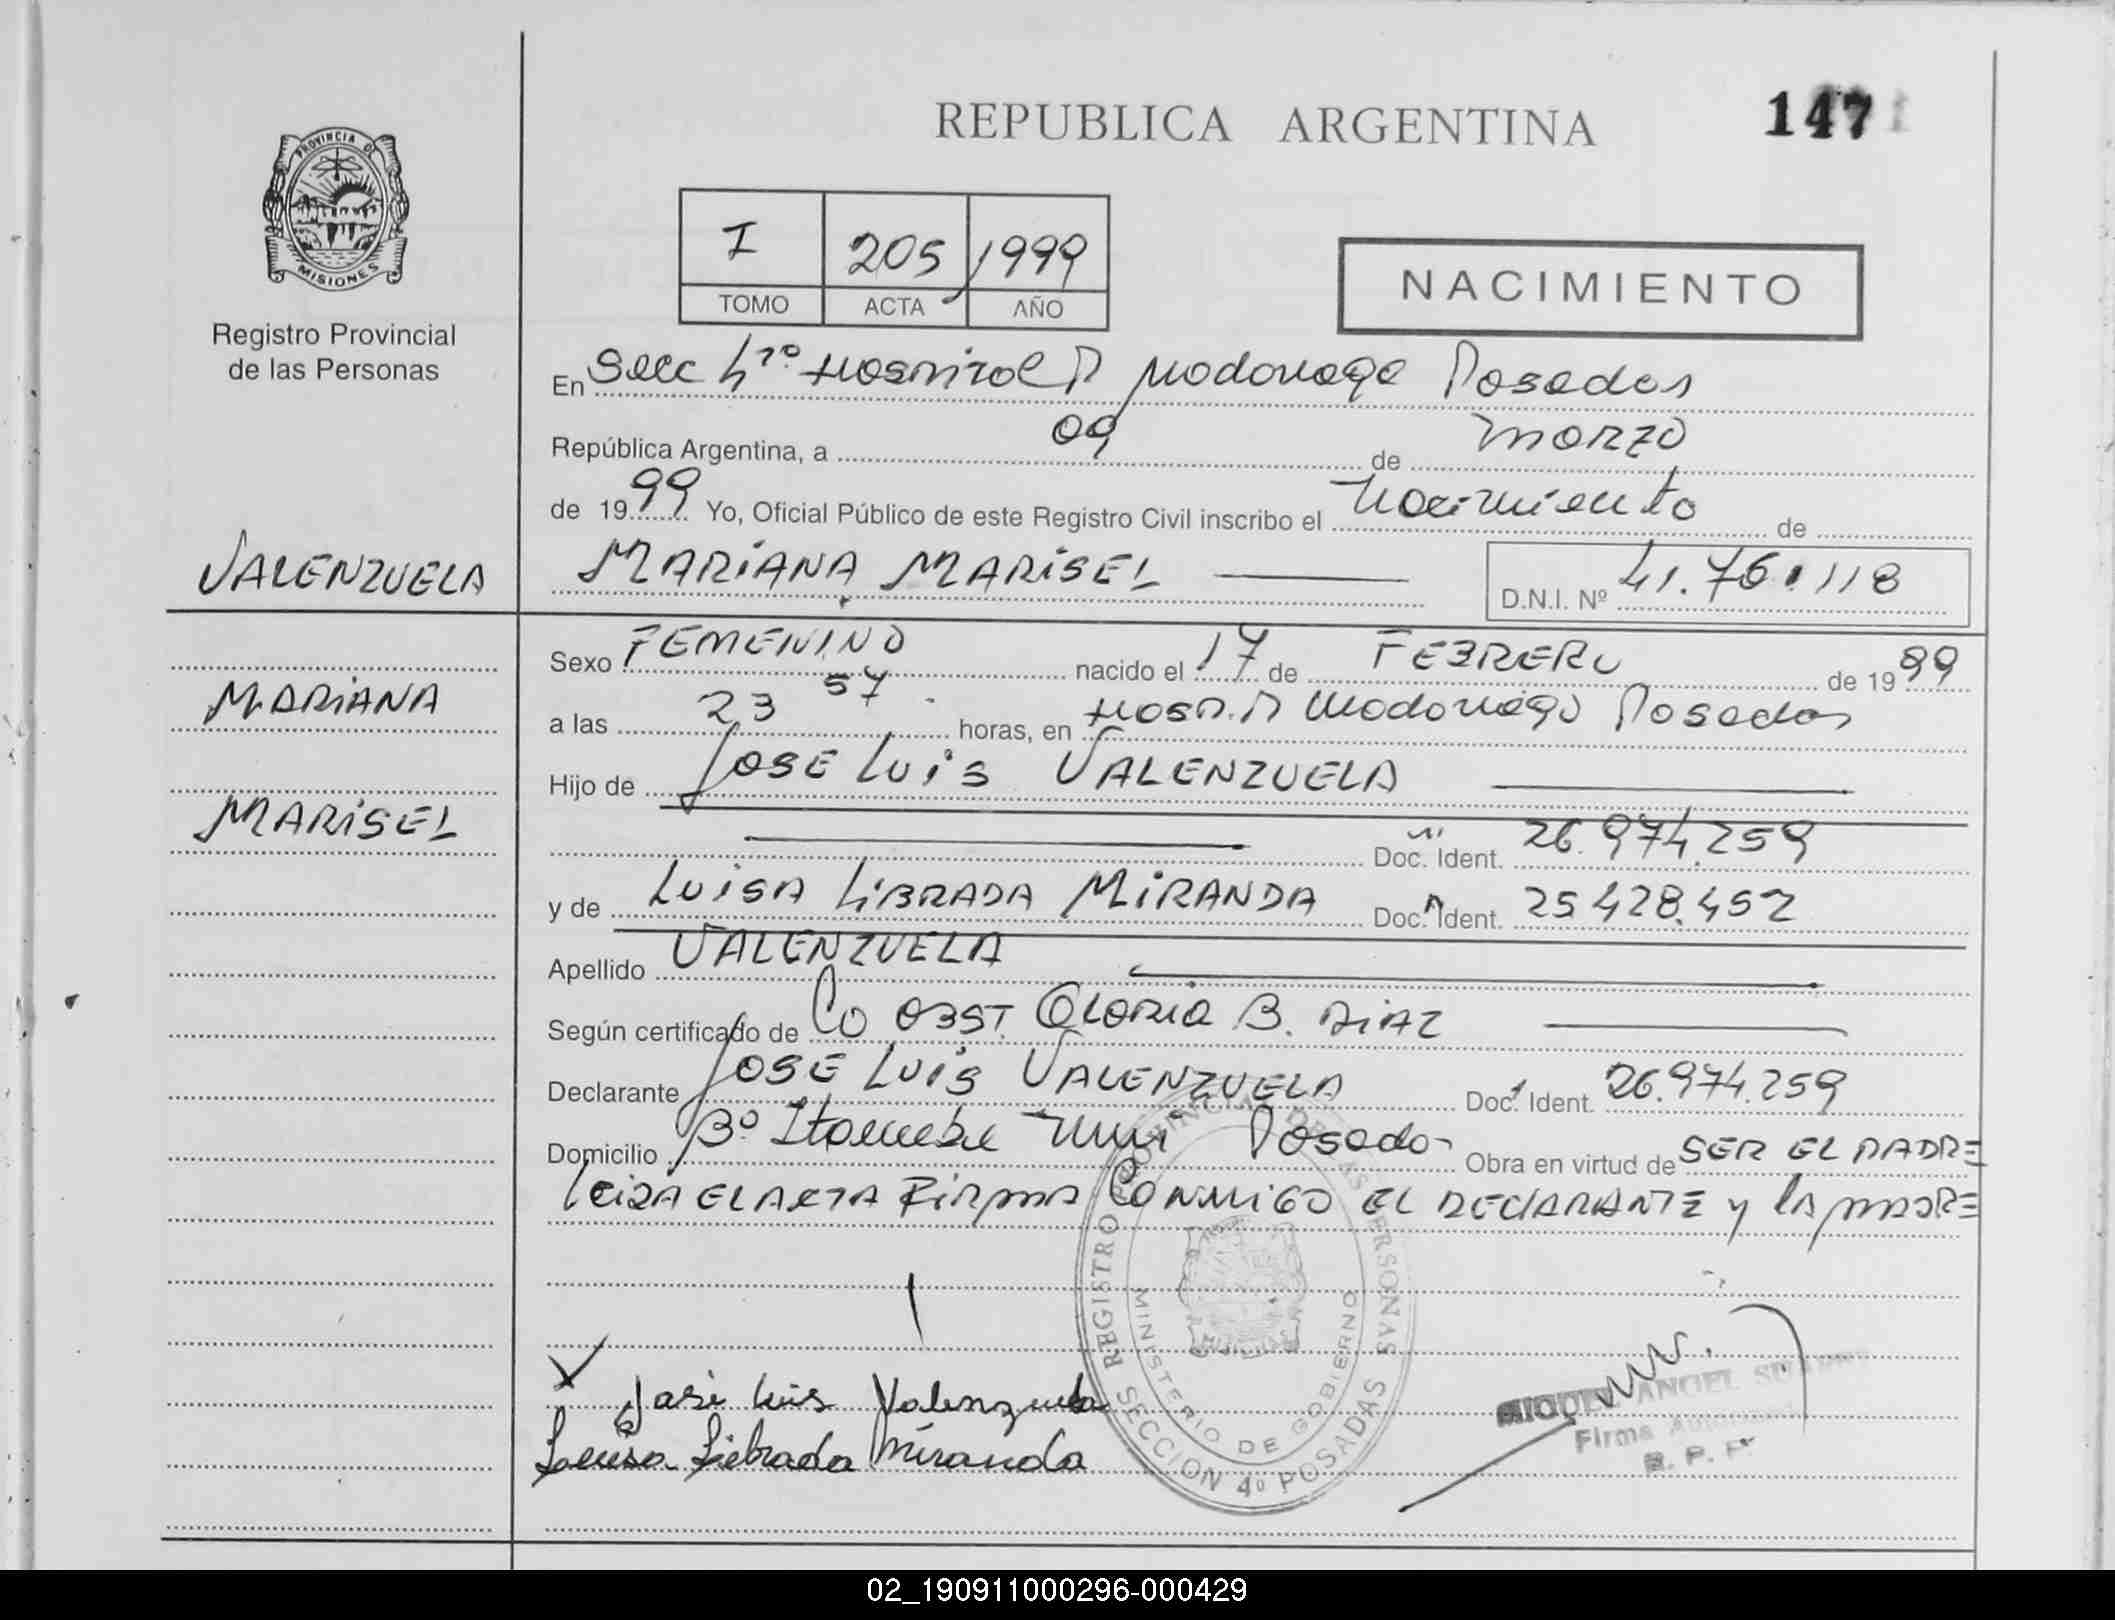 REPUBLICA ARGENTINA
147
PROVINCIA DE
MISIONES
Registro Provincial
de las Personas
I 205 1999
TOMO ACTA AÑO
NACIMIENTO
En Secc 4º Hospital R Madariaga Posadas
República Argentina, a 09 de Marzo
de 1999 Yo, Oficial Público de este Registro Civil inscribo el Nacimiento de
VALENZUELA MARIANA MARISEL D.N.I. Nº 41.761.118
Sexo FEMENINO nacido el 17 de FEBRERO de 1999
MARIANA
a las 23 57 horas, en Hosp. R Madariaga Posadas
Hijo de JOSE LUIS VALENZUELA
MARISEL
Doc. Ident. 26.974.259
y de LUISA LIBRADA MIRANDA Doc. Ident. 25.428.452
Apellido VALENZUELA
Según certificado de Lo OBST GLORIA B. DIAZ
Declarante JOSE LUIS VALENZUELA Doc. Ident. 26.974.259
Domicilio Bº Itaembe Mini Posadas Obra en virtud de SER EL PADRE
Leida EL ACTA FIRMA CONMIGO EL DECLARANTE y LA MADRE
José Luis Valenzuela
Luisa Librada Miranda
REGISTRO PROVINCIAL DE LAS PERSONAS
MINISTERIO DE GOBIERNO
SECCION 4º POSADAS
MIGUEL ANGEL
Firma
R. P. P.
02_190911000296-000429